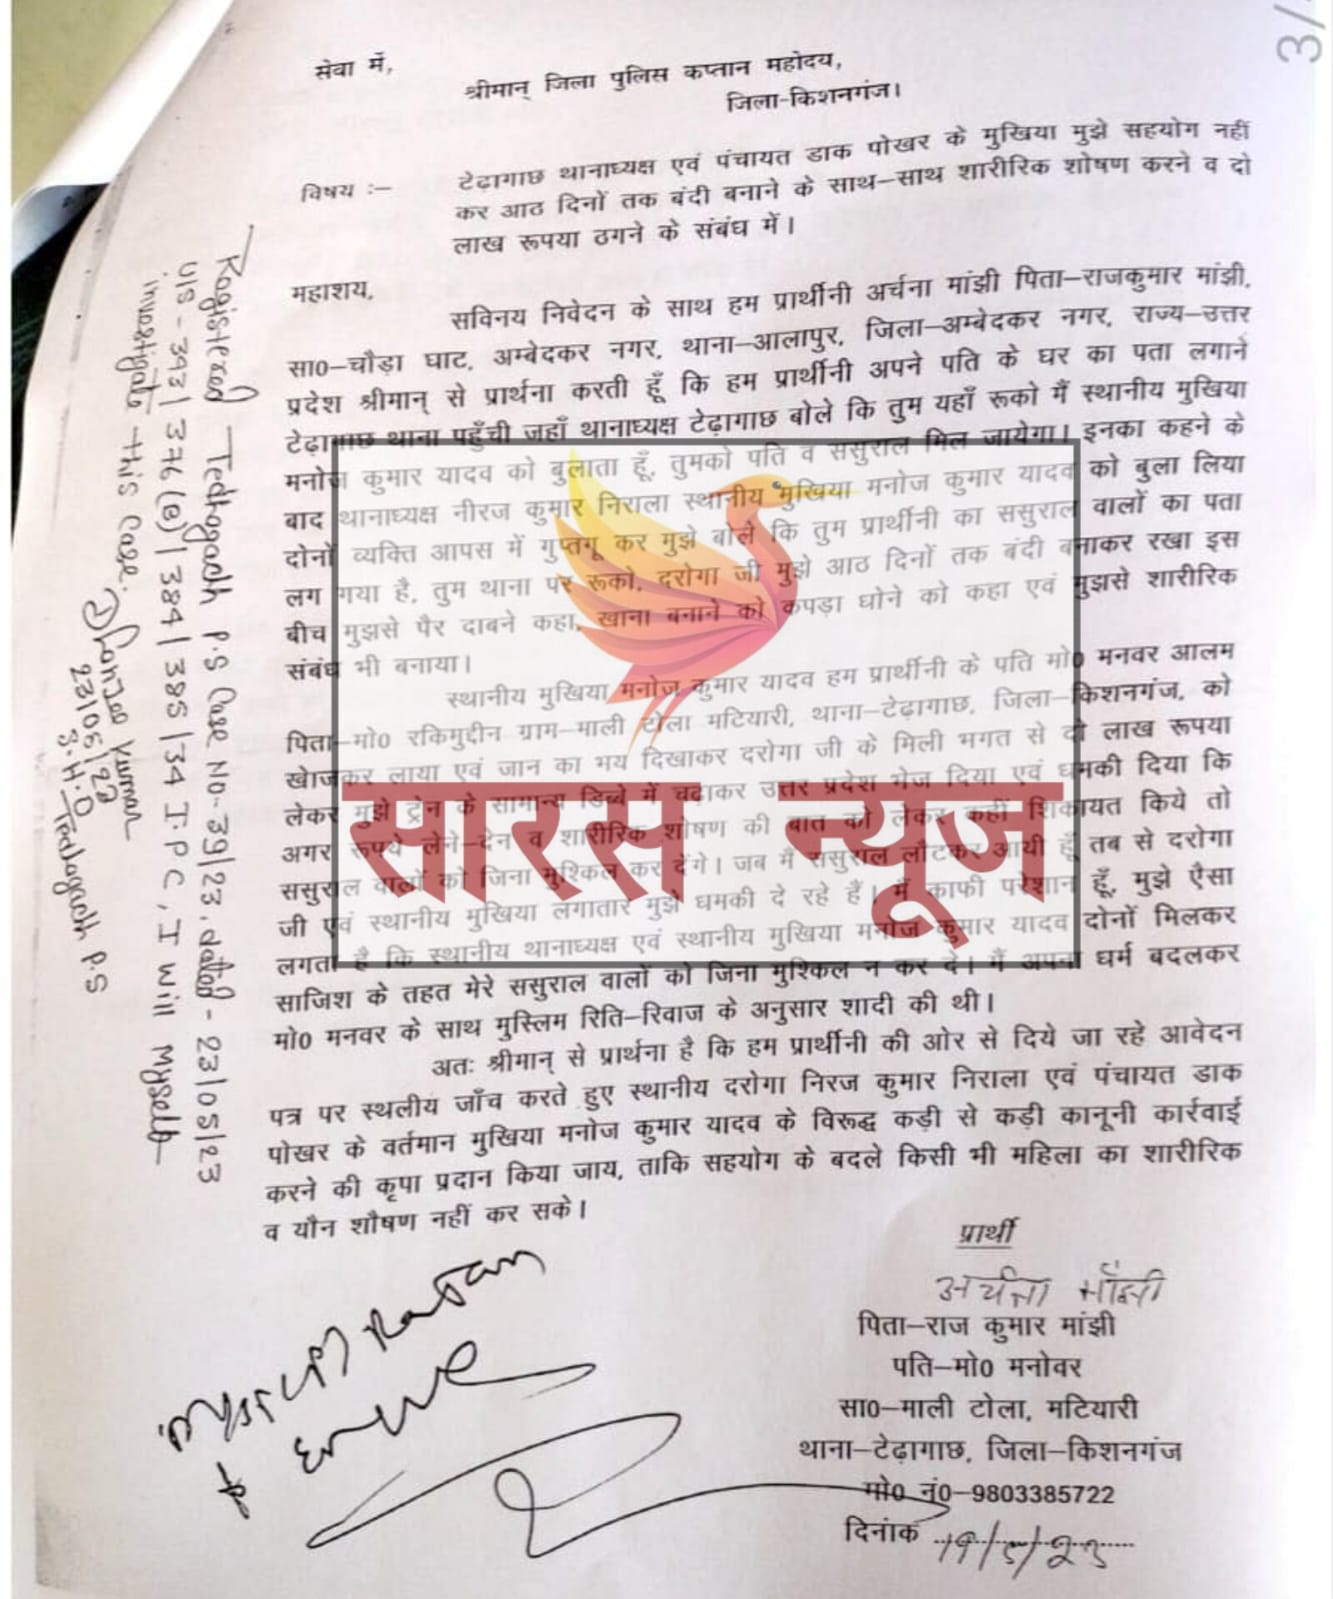 3/
सेवा में,
श्रीमान् जिला पुलिस कप्तान महोदय,
जिला-किशनगंज।
विषय :–
टेढ़ागाछ थानाध्यक्ष एवं पंचायत डाक पोखर के मुखिया मुझे सहयोग नहीं
कर आठ दिनों तक बंदी बनाने के साथ–साथ शारीरिक शोषण करने व दो
लाख रूपया ठगने के संबंध में।
महाशय,
सविनय निवेदन के साथ हम प्रार्थीनी अर्चना मांझी पिता–राजकुमार मांझी,
सा0–चौड़ा घाट, अम्बेदकर नगर, थाना–आलापुर, जिला–अम्बेदकर नगर, राज्य–उत्तर
प्रदेश श्रीमान् से प्रार्थना करती हूँ कि हम प्रार्थीनी अपने पति के घर का पता लगाने
टेढ़ागाछ थाना पहुँची जहाँ थानाध्यक्ष टेढ़ागाछ बोले कि तुम यहाँ रूको मैं स्थानीय मुखिया
मनोज कुमार यादव को बुलाता हूँ, तुमको पति व ससुराल मिल जायेगा। इनका कहने के
बाद थानाध्यक्ष नीरज कुमार निराला स्थानीय मुखिया मनोज कुमार यादव को बुला लिया
दोनों व्यक्ति आपस में गुप्तगू कर मुझे बोले कि तुम प्रार्थीनी का ससुराल वालों का पता
लग गया है, तुम थाना पर रूको, दरोगा जी मुझे आठ दिनों तक बंदी बनाकर रखा इस
बीच मुझसे पैर दाबने कहा, खाना बनाने को कपड़ा धोने को कहा एवं मुझसे शारीरिक
संबंध भी बनाया।
स्थानीय मुखिया मनोज कुमार यादव हम प्रार्थीनी के पति मो0 मनवर आलम
पिता–मो0 रकिमुद्दीन ग्राम–माली टोला मटियारी, थाना–टेढ़ागाछ, जिला–किशनगंज, को
खोजकर लाया एवं जान का भय दिखाकर दरोगा जी के मिली भगत से दो लाख रूपया
लेकर मुझे ट्रेन के सामान्य डिब्बे में चढ़ाकर उत्तर प्रदेश भेज दिया एवं धमकी दिया कि
अगर रूपये लेने–देन व शारीरिक शोषण की बात को लेकर कहीं शिकायत किये तो
ससुराल वालों को जिना मुश्किल कर देंगे। जब मैं ससुराल लौटकर आयी हूँ तब से दरोगा
जी एवं स्थानीय मुखिया लगातार मुझे धमकी दे रहे हैं। मैं काफी परेशान हूँ, मुझे ऐसा
लगता है कि स्थानीय थानाध्यक्ष एवं स्थानीय मुखिया मनोज कुमार यादव दोनों मिलकर
साजिश के तहत मेरे ससुराल वालों को जिना मुश्किल न कर दे। मैं अपना धर्म बदलकर
मो0 मनवर के साथ मुस्लिम रिति–रिवाज के अनुसार शादी की थी।
अतः श्रीमान् से प्रार्थना है कि हम प्रार्थीनी की ओर से दिये जा रहे आवेदन
पत्र पर स्थलीय जाँच करते हुए स्थानीय दरोगा निरज कुमार निराला एवं पंचायत डाक
पोखर के वर्तमान मुखिया मनोज कुमार यादव के विरूद्ध कड़ी से कड़ी कानूनी कार्रवाई
करने की कृपा प्रदान किया जाय, ताकि सहयोग के बदले किसी भी महिला का शारीरिक
व यौन शौषण नहीं कर सके।
सारस न्यूज
प्रार्थी
अर्चना माँझी
पिता–राज कुमार मांझी
पति–मो0 मनोवर
सा0–माली टोला, मटियारी
थाना–टेढ़ागाछ, जिला–किशनगंज
मो0 नं0–9803385722
दिनांक 19/5/23
Registered Tedhagachh P.S Case No- 39/23, dated - 23/05/23
U/S - 343/376(B)/384/385/34 I.P.C, I will Myself
investigate this case.
Kumar
23/05/23
S.H.O Tedhagachh P.S